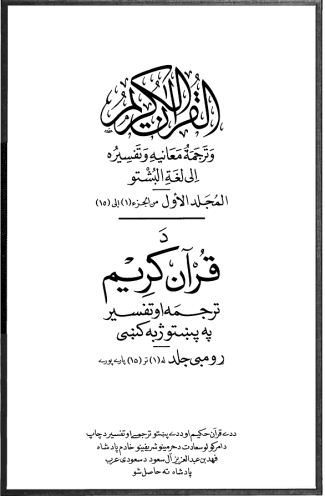 القرآن الكريم
وَتَرجَمَةُ مَعَانيهِ وَتَفسِيرُه
إلى لغَةِ البُشتو
المُجَلد الأول من الجزء (١) إلى (١٥)
دَ
قُرآن كَرِيم
ترجمه او تفسير
په پښتو ژبه کښې
رومبى جلد له (١) تر (١٥) پارې پورې
ددې قرآن حکيم او ددې پښتو ترجمې او تفسير د چاپ
د امر کولو سعادت د حرمينو شريفينو خادم پادشاه
فهد بن عبدالعزيز آل سعود د سعودى عرب
پادشاه ته حاصل شو